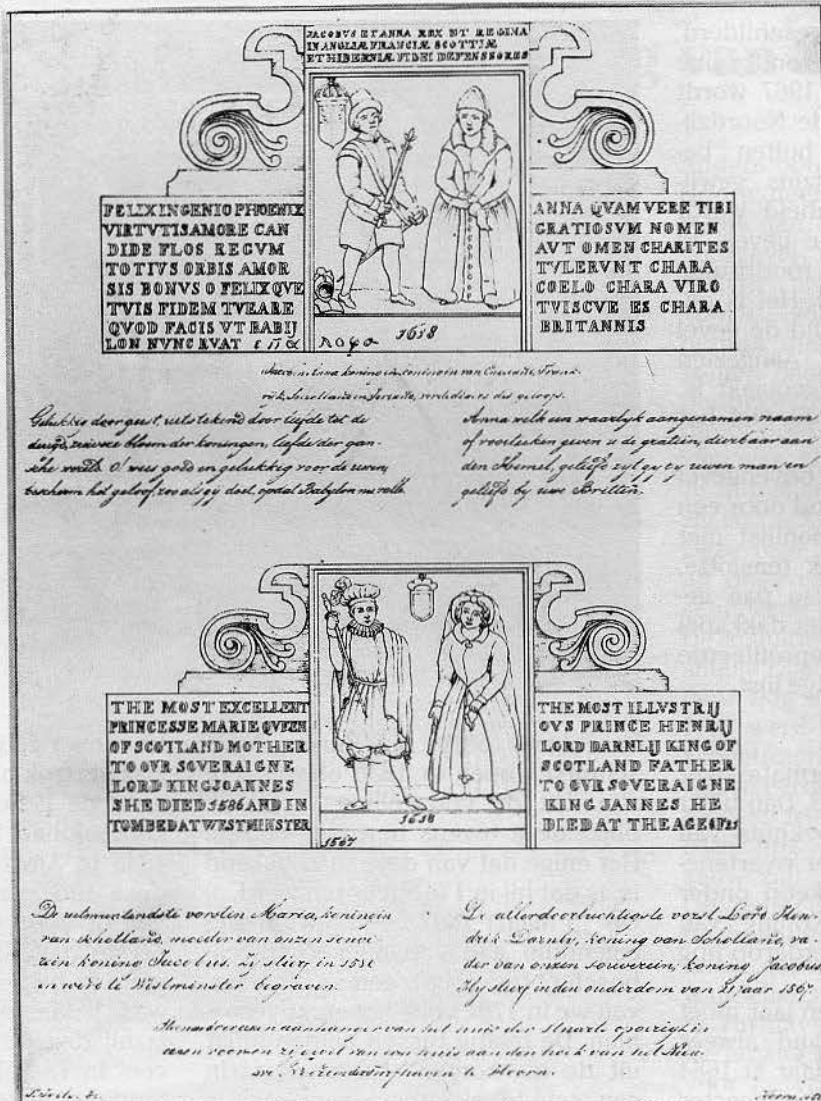 JACOBVS ET ANNA REX ET REGINA
IN ANGLIÆ FRANCIÆ SCOTTIÆ
ET HIBERNIÆ FIDEI DEFENSSORES
FELIX INGENIO PHOENIX
VIRTVTIS AMORE CAN
DIDE FLOS REGVM
TOTIVS ORBIS AMOR
SIS BONVS O FELIX QVE
TVIS FIDEM TVEARE
QVOD FACIS VT BABIJ
LON NVNC RVAT
1618
ANNA QVAM VERE TIBI
GRATIOSVM NOMEN
AVT OMEN CHARITES
TVLERVNT CHARA
COELO CHARA VIRO
TVISCVE ES CHARA
BRITANNIS
Gelukkig door geest, uitstekend door liefde tot de
deugd, zuivere bloem der koningen, liefde der gan-
sche wereld. O! wees goed en gelukkig voor de uwen,
bescherm het geloof, zoo als gy doet, opdat Babylon nu valle.
Anna welk een waarlyk aangenamen naam
of voorteeken geven u de gratien, dierbaar aan
den Hemel, geliefd zyt gy by uwen man en
geliefd by uwe Britten.
THE MOST EXCELLENT
PRINCESSE MARIE QVEEN
OF SCOTLAND MOTHER
TO OVR SOVERAIGNE
LORD KING JOANNES
SHE DIED 1586 AND IN
TOMBED AT WESTMINSTER
1618
1567
THE MOST ILLVSTRIJ
OVS PRINCE HENRIJ
LORD DARNLIJ KING OF
SCOTLAND FATHER
TO OVR SOVERAIGNE
KING JANNES HE
DIED AT THE AGE OF 21
De uitmuntendste vorstin Maria, koningin
van Schotland, moeder van onzen souve
rein koning Jacobus. Zy stierf in
en werd te Westminster begraven.
De allerdoorluchtigste vorst Lord Hen-
drik Darnly, koning van Schotland, va-
der van onzen souverein, koning Jacobus
Hy stierf in den ouderdom van 21 jaar 1567.
aanhanger van het huis der Stuarts
van een huis aan den hoek van het
te Hoorn.